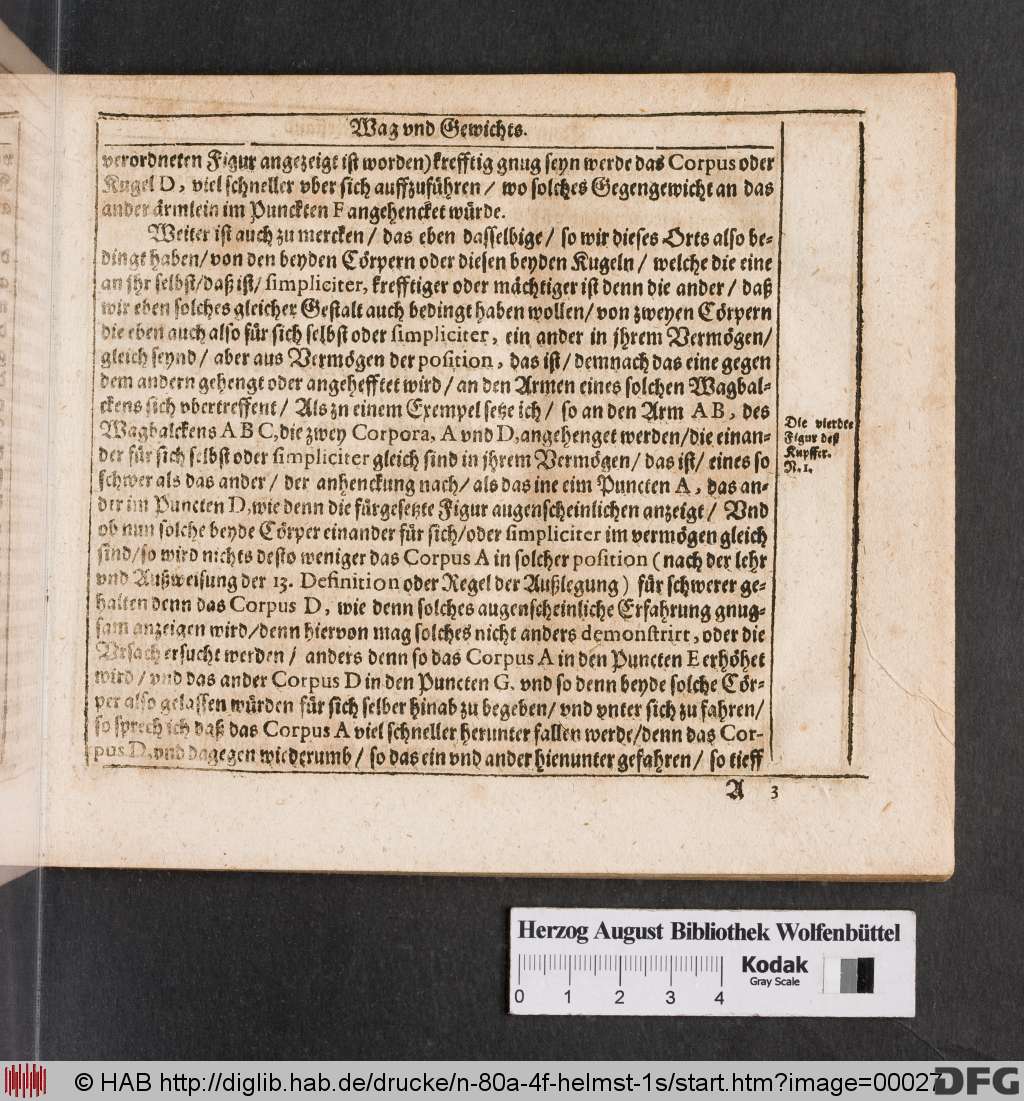 Wag vnd Gewichts.
verordneten Figur angezeigt ist worden) krefftig gnug seyn werde das Corpus oder
Kugel D, viel schneller vber sich auffzuführen / wo solches Gegengewicht an das
ander ärmlein im Punckten F angehencket würde.
Weiter ist auch zu mercken / das eben dasselbige / so wir dieses Orts also be-
dingt haben / von den beyden Cörpern oder diesen beyden Kugeln / welche die eine
an jhr selbst / daß ist / simpliciter, krefftiger oder mächtiger ist denn die ander / daß
wir eben solches gleicher Gestalt auch bedingt haben wollen / von zweyen Cörpern
die eben auch also für sich selbst oder simpliciter, ein ander in jhrem Vermögen /
gleich seynd / aber aus Vermögen der position, das ist / demnach das eine gegen
dem andern gehengt oder angehefftet wird / an den Armen eines solchen Wagbal-
ckens sich vbertreffent / Als zn einem Exempel setze ich / so an den Arm AB, des
Wagbalckens ABC, die zwey Corpora, A vnd D, angehenget werden / die einan-
der für sich selbst oder simpliciter gleich sind in jhrem Vermögen / das ist / eines so
schwer als das ander / der anhenckung nach / als das ine eim Puncten A, das an-
der im Puncten D, wie denn die fürgesetzte Figur augenscheinlichen anzeigt / Vnd
ob nun solche beyde Cörper einander für sich / oder simpliciter im vermögen gleich
sind / so wird nichts desto weniger das Corpus A in solcher position (nach der lehr
vnd Außweisung der 13. Definition oder Regel der Außlegung) für schwerer ge-
halten denn das Corpus D, wie denn solches augenscheinliche Erfahrung gnug-
sam anzeigen wird / denn hiervon mag solches nicht anders demonstrirt, oder die
Vrsach ersucht werden / anders denn so das Corpus A in den Puncten E erhöhet
wird / vnd das ander Corpus D in den Puncten G. vnd so denn beyde solche Cör-
per also gelassen würden für sich selber hinab zu begeben / vnd vnter sich zu fahren /
so sprech ich daß das Corpus A viel schneller herunter fallen werde / denn das Cor-
pus D, vnd dagegen wiederumb / so das ein vnd ander hienunter gefahren / so tieff
A 3
Die vierdte
Figur deß
Kupffer.
N. 1.
Herzog August Bibliothek Wolfenbüttel
0 1 2 3 4
Kodak
Gray Scale
© HAB http://diglib.hab.de/drucke/n-80a-4f-helmst-1s/start.htm?image=00027
DFG